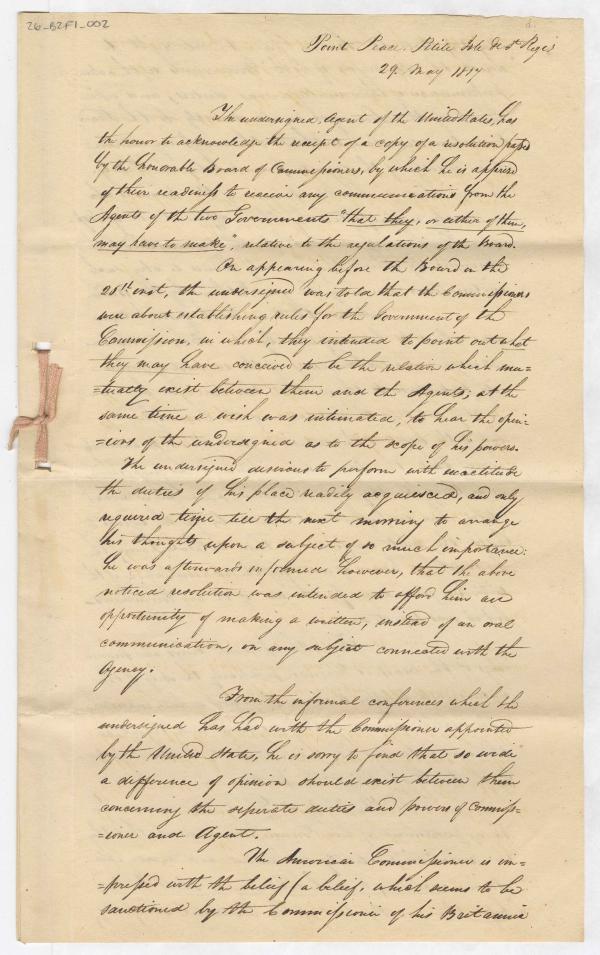 26-B2F1-002
Point Peace. Petite Isle de St Regis
29 May 1817
The undersigned, Agent of the United States, has
the honor to acknowledge the receipt of a copy of a resolution passed
by the Honorable Board of Commissioners, by which he is apprised
of their readiness to receive any communications from the
Agents of the two Governments "that they, or either of them,
may have to make", relative to the regulations of the Board.
On appearing before the Board on the
28th inst, the undersigned was told that the Commissioners
were about establishing rules for the Government of the
Commission, in which, they intended to point out what
they may have conceived to be the relation which mu-
-tually exist between them and the Agents; at the
same time a wish was intimated, to hear the opin-
-ions of the undersigned as to the scope of his powers.
The undersigned desirous to perform with exactitude
the duties of his place readily acquiesced, and only
required time till the next morning to arrange
his thoughts upon a subject of so much importance:
he was afterwards informed however, that the above
noticed resolution was intended to afford him an
opportunity of making a written, instead of an oral
communication, on any subject connected with the
Agency.
From the informal conferences which the
undersigned has had with the Commissioner appointed
by the United States, he is sorry to find that so wide
a difference of opinion should exist between them
concerning the seperate duties and powers of Commiss-
-ioner and Agent.
The American Commissioner is im-
-pressed with the belief (a belief, which seems to be
sanctioned by the Commissioner of his Britannic